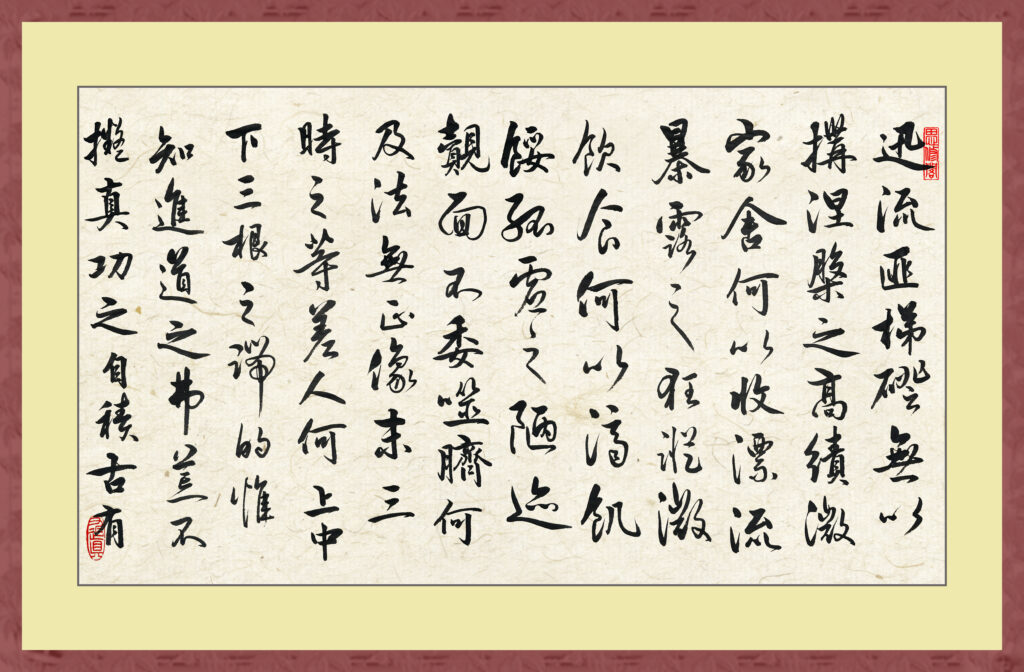 迅流匪梯磴無以
搆涅槃之高績微
家舍何以收漂流
暴露之狂蹤微
飲食何以濟飢
餒孤虛之陋迹
覿面不委噬臍何
及法無正像末三
時之等差人何上中
下三根之端的惟
知進道之弗荒不
擬真功之自積古有